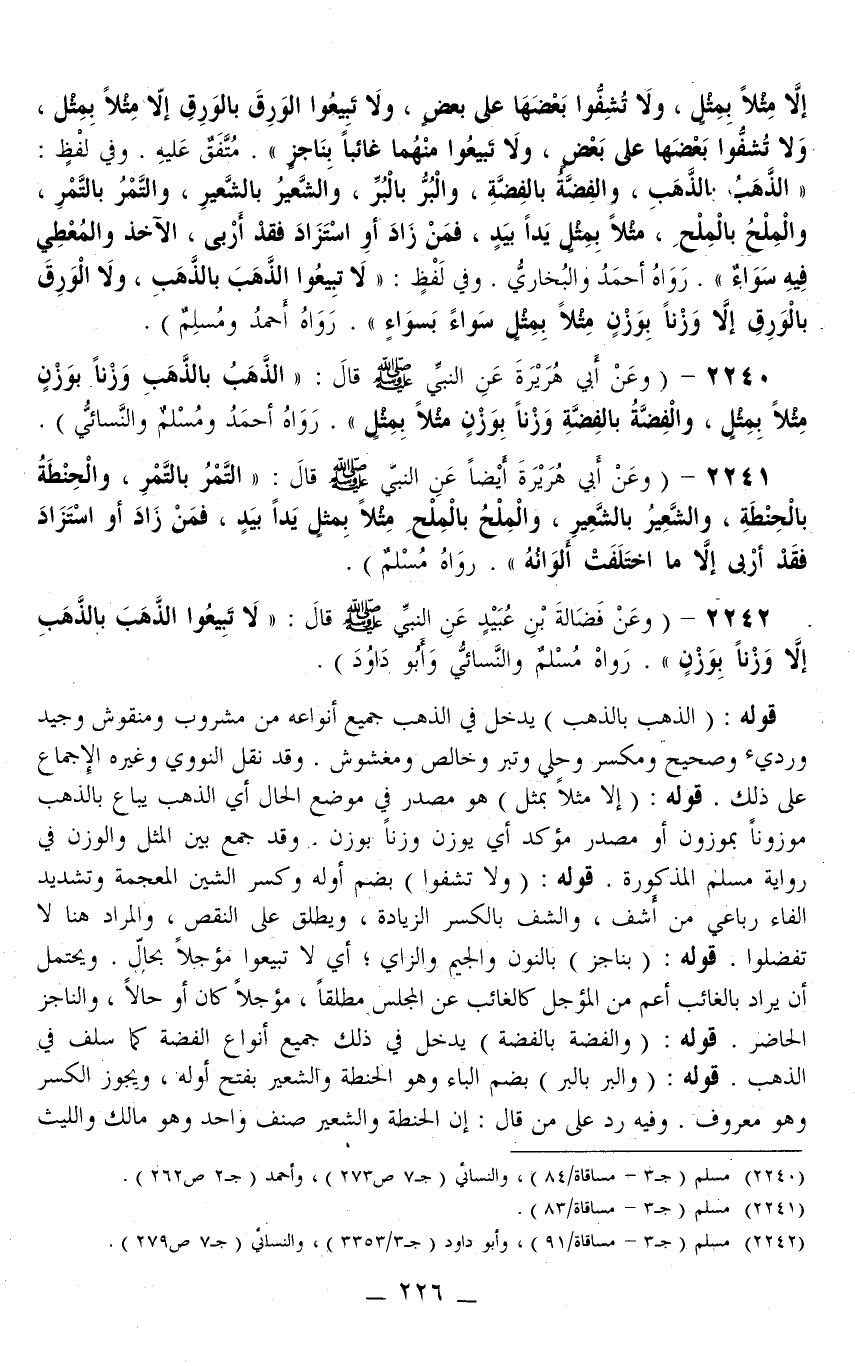 إلَّا مِثْلاً بِمِثْلٍ ، ولَا تُشِفُّوا بَعْضَهَا على بعضٍ ، ولَا تَبِيعُوا الوَرِقَ بالوَرِقِ إلّا مِثْلاً بِمِثْل ،
وَلا تُشفُّوا بَعْضَها على بَعْض ، ولَا تَبيعُوا منْهُما غائباً بِنَاجزٍ » . مُتَّفَقٌ عَليهِ . وفي لفْظٍ :
« الذَّهَبُ بالذَّهَبِ ، والفِضَّةُ بالفِضَّة ، والْبُرُّ بالْبُرِّ ، والشَّعيرُ بالشَّعيرِ ، والتَّمْرُ بالتَّمْرِ ،
والْمِلْحُ بالْمِلْحِ ، مثْلاً بِمِثْلٍ يَداً بيَدٍ ، فمَنْ زَادَ أو اسْتَزَادَ فقدْ أَرْبى ، الآخذ والمُعْطِي
فِيهِ سَوَاءٌ » . رَوَاهُ أحمَدُ والبُخاريُّ . وفي لَفْظٍ : « لَا تبِيعُوا الذَّهَبَ بالذَّهَبِ ، ولَا الْوَرِقَ
بالْوَرِقِ إلَّا وَزْناً بِوَزْنٍ مِثْلاً بِمِثْلٍ سَواءً بَسوَاءٍ » . رَوَاهُ أَحمدُ ومُسلِمٌ ) .
٢٢٤٠ – ( وعَنْ أَبي هُرَيْرَةَ عَنِ النبيِّ ﷺ قالَ : « الذَّهَبُ بالذَّهَبِ وَزْناً بوَزْنٍ
مِثْلاً بِمِثْلٍ ، والْفِضَّةُ بالفِضَّةِ وَزْناً بِوَزْنٍ مثْلاً بِمِثْلٍ » . رَوَاهُ أحمَدُ ومُسْلمٌ والنَّسائيُّ ) .
٢٢٤١ – ( وعَنْ أَبي هُرَيْرَةَ أَيْضاً عَنِ النبيّ ﷺ قالَ : « التَّمْرُ بالتَّمْرِ ، والْحِنْطَةُ
بالْحِنْطَةِ ، والشَّعِيرُ بالشَّعِيرِ ، والْمِلْحُ بالْمِلْحِ مِثْلاً بِمثلٍ يَداً بيَدٍ ، فمَنْ زَادَ أو اسْتَزَادَ
فقَدْ أرْبى إلَّا ما اختَلَفَتْ أَلْوَانُهُ » . رواهُ مُسْلمٌ ) .
٢٢٤٢ – ( وعَنْ فَضَالةَ بْنِ عُبَيْدٍ عَنِ النبيِّ ﷺ قالَ : « لَا تَبِيعُوا الذَّهَبَ بالذَّهَبِ
إلَّا وَزْناً بِوَزْنٍ » . رَواهُ مُسْلمٌ والنَّسائيُّ وَأَبُو دَاوُدَ ) .
قوله : ( الذهب بالذهب ) يدخل في الذهب جميع أنواعه من مشروب ومنقوش وجيد
ورديء وصحيح ومكسر وحلي وتبر وخالص ومغشوش . وقد نقل النووي وغيره الإجماع
على ذلك . قوله : ( إلا مثلاً بمثل ) هو مصدر في موضع الحال أي الذهب يباع بالذهب
موزوناً بموزون أو مصدر مؤكد أي يوزن وزناً بوزن . وقد جمع بين المثل والوزن في
رواية مسلم المذكورة . قوله : ( ولا تشفوا ) بضم أوله وكسر الشين المعجمة وتشديد
الفاء رباعي من أَشف ، والشف بالكسر الزيادة ، ويطلق على النقص ، والمراد هنا لا
تفضلوا . قوله : ( بناجز ) بالنون والجيم والزاي ؛ أي لا تبيعوا مؤجلاً بحالّ . ويحتمل
أن يراد بالغائب أعم من المؤجل كالغائب عن المجلس مطلقاً ، مؤجلاً كان أو حالاً ، والناجز
الحاضر . قوله : ( والفضة بالفضة ) يدخل في ذلك جميع أنواع الفضة كما سلف في
الذهب . قوله : ( والبر بالبر ) بضم الباء وهو الحنطة والشعير بفتح أوله ، ويجوز الكسر
وهو معروف . وفيه رد على من قال : إن الحنطة والشعير صنف واحد وهو مالك والليث
(٢٢٤٠) مسلم ( جـ٣ – مساقاة/٨٤ ) ، والنسائي ( جـ٧ ص٢٧٣ ) ، وأحمد ( جـ٢ ص٢٦٢ ) .
(٢٢٤١) مسلم ( جـ٣ – مساقاة/٨٣ ) .
(٢٢٤٢) مسلم ( جـ٣ – مساقاة/٩١ ) ، وأبو داود ( جـ٣/٣٣٥٣ ) ، والنسائي ( جـ٧ ص٢٧٩ ) .
– ٢٢٦ –